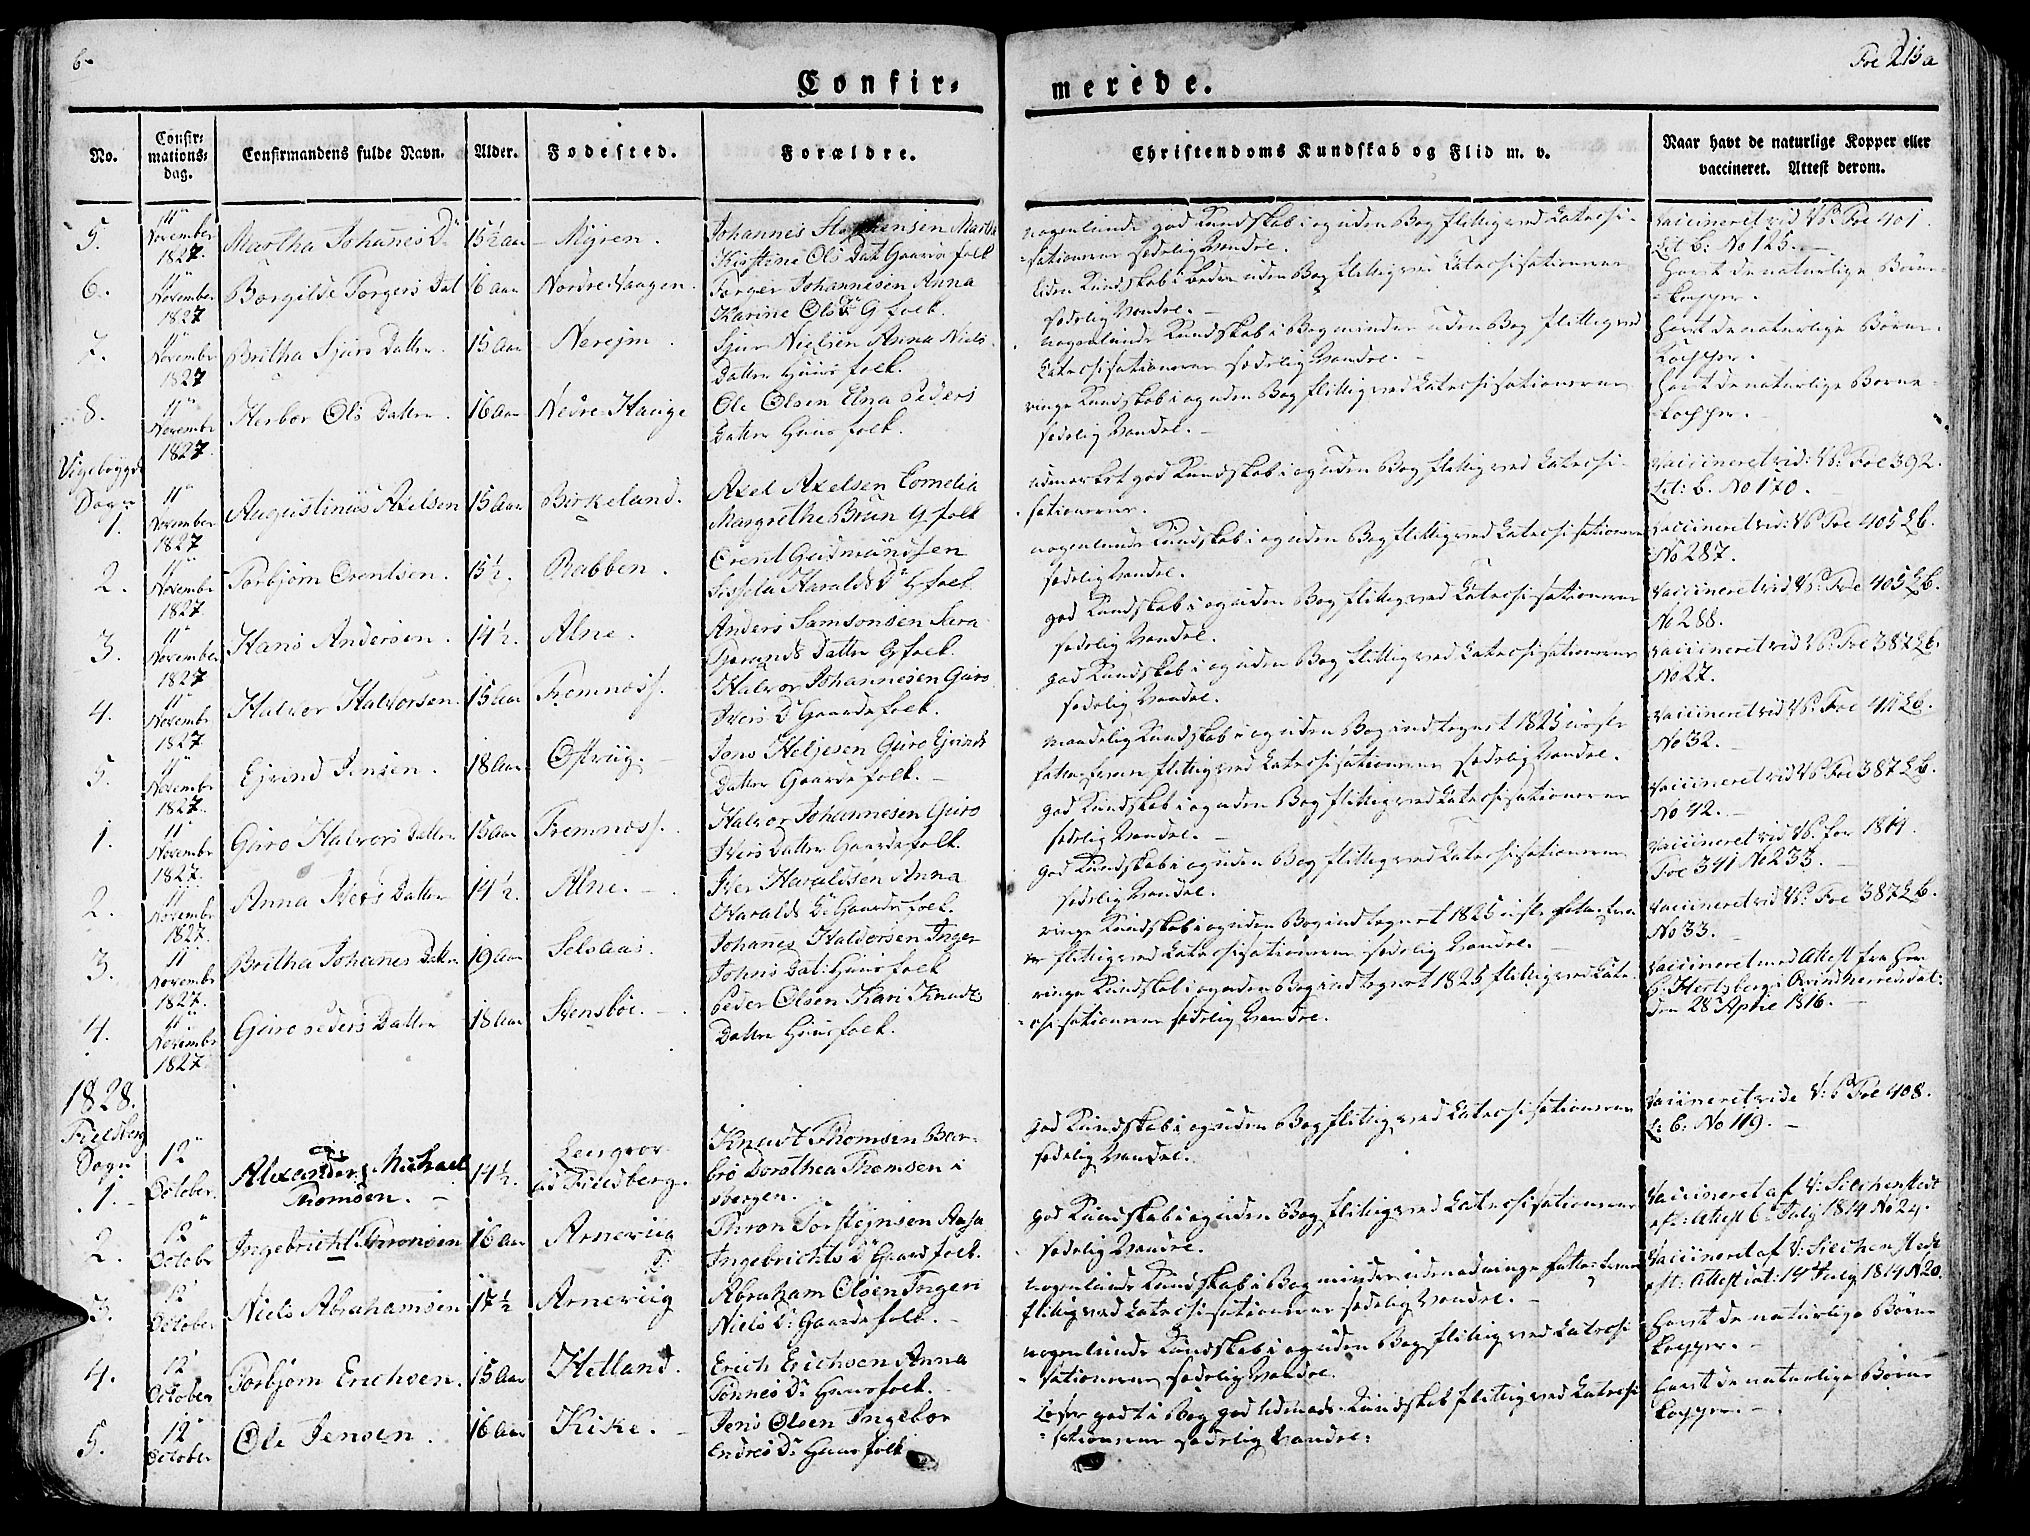 Foe 213a
Confir=
merede.
No.
Confir=
mations=
dag.
Confirmandens fulde Navn.
Alder.
Fodested.
Forældre.
Christendoms Kundskab og Flid m. v.
Naar havt de naturlige Kopper eller
vaccineret. Attest derom.
5. 11" November 1827. Martha Johanes Dr 15½ Aar Myren.
Johannes Martha
Kirstine Ols Dat Gaards folk
nogenlunde god Kundskab i og uden Bog flittig ved Catechi-
sationerne sædelig Vandel.
vaccineret vid VP. Foe 401
Lit b: No 125.
6. 11" November 1827 Borgilde Torgers Dat 16 Aar Nordre Haugen.
Torger Johannesen Anna
Karine Ols Dr G folk.
liden Kundskab i uden Bog flittig ved Catechisationerne
sædelig Vandel.
havt de naturlige Børne-
kopper.
7. 11" November 1827 Britha Sjurs Datter 15 Aar Nerejm.
Sjur Nielsen Anna Niels
Datter Huus folk.
nogenlunde Kundskab i Bog mindre uden Bog flittig ved
Catechisationerne sædelig Vandel.
havt de naturlige Børne-
kopper.
8. 11" November 1827. Herbor Ols Datter. 16 Aar Nedre Hauge
Ole Olsen Elna Peders
Datter Huus folk.
ringe Kundskab i og uden Bog flittig ved Catechisationerne
sædelig Vandel.
havt de naturlige Børne-
kopper.
Vigebøygds
Sogn
1. 11" November 1827 Augustinus Axelsen 15 Aar Birkeland.
Axel Axelsen Cornelia
Margrethe Brun G folk
udmærket god Kundskab i og uden Bog flittig ved Catechi-
sationerne.
vaccineret vid: VP. Foe 392.
Lit: b. No 170.
2. 11" November 1827 Torbjørn Erentsen. 15½. Babben.
Erent Gudmundsen
Sissela Haralds Dr G folk.
nogenlunde Kundskab i og uden Bog flittig ved Catechisationerne
sædelig Vandel.
vaccineret vid: VP. Foe 405 L b.
No 287.
3. 11" November 1827 Hans Andersen. 14½. Alne.
Anders Samsonsen
Datter G folk.
god Kundskab i og uden Bog flittig ved Catechisationerne
sædelig Vandel.
vaccineret vid VP. Foe 405 L b.
No 288.
4. 11" November 1827 Halvor Halvorsen. 15 Aar Fremnæss.
Halvor Johannesen Guro
Ivers Dr Gaarde folk.
god Kundskab i og uden Bog flittig ved Catechisationerne
sædelig Vandel.
vaccineret vid VP. Foe 387 L b.
No 27.
5. 11" November 1827. Ejvind Jensen. 18 Aar
Jens Guro Ejvinds
Datter Gaarde folk.
maadelig Kundskab i og uden Bog indtegnet 1825
flittig ved Catechisationerne sædelig Vandel.
vaccineret vid VP. Foe 411 L b.
No 32.
1. 11" November 1827. Guro Halvors Datter 15 Aar Fremnæss.
Halvor Johannesen Guro
Ivers Datter Gaardefolk.
god Kundskab i og uden Bog flittig ved Catechisationerne
sædelig Vandel.
vaccineret vid VP. Foe 387 L b.
No 42.
2. 11" November 1827. Anna Ivers Datter 14½. Alne.
Iver Haraldsen Anna
Haralds Dr Gaarde folk.
god Kundskab i og uden Bog flittig ved Catechisationerne
sædelig Vandel.
vaccineret vid VP. for 1814.
Foe 341 No 233.
3. 11" November 1827. Britha Johanes Datter 19 Aar Selsaas.
Johanes Haldorsen Inger
Johns Dat: Huus folk
ringe Kundskab i og uden Bog indtegnet 1825
flittig ved Catechisationerne sædelig Vandel.
vaccineret vid VP. Foe 387 L b.
No 33.
4. 11" November 1827. Guro Peders Datter 18 Aar Stensbøe.
Peder Olsen Kari Knuds
Datter Huus folk.
ringe Kundskab i og uden Bog indtegnet 1825 flittig ved Cate-
chisationerne sædelig Vandel.
vaccineret med Attest fra Hr
Hertzberg i Qvindherred dat:
den 28 Aprie 1816.
1828.
Fieldberg
Sogn
1. 12" October. Alexander Michael Thomsen. 14½.
i Fieldberg.
Knudt Thomsen Bar-
bro Dorothea Thomsen i
Bergen.
god Kundskab i og uden Bog flittig ved Catechisationerne
sædelig Vandel.
vaccineret vide V: P Foe 408.
L b: No 119.
2. 12" October Ingebricht Thronsen 16 Aar Arneviig
Thron Torstejnsen Aasa
Ingebrichts Dr Gaard folk.
god Kundskab i og uden Bog flittig ved Catechisationerne
sædelig Vandel.
vaccineret af V:
Attest 6. July 1814 No 24.
3. 12" October Niels Abrahamsen 17½ Arneviig
Abraham Olsen Ingeri
Niels Dr Gaarde folk.
nogenlunde Kundskab i Bog mindre
flittig ved Catechisationerne sædelig Vandel.
vaccineret af V:
Attest dat: 14 July 1814 N 20.
4. 12" October Torbjørn Erichsen. 15 Aar Helland.
Erich Erichsen Anna
Tønnes Dr Huus folk.
nogenlunde Kundskab i og uden Bog flittig ved Catechi-
sationerne sædelig Vandel.
havt de naturlige Børne
kopper.
5. 12" October Ole Jensen. 16 Aar Kike.
Jens Olsen Ingebor
Endres Dr Huus folk
Læser godt i Bog god Kundskab flittig ved Catechi-
sationerne sædelig Vandel.
havt de naturlige Børne
kopper.